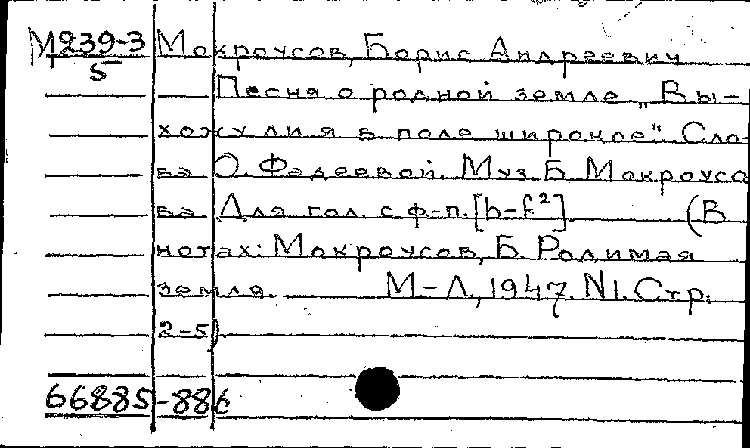 М239-3 Мокроусов, Борис Андреевич
5
Песня о родной земле „Вы-
хожу ли я в поле широкое“. Сло-
ва О. Фадеевой. Муз. Б. Мокроусо
ва. Для гол. с ф-п. [h-f²] (В
нотах: Мокроусов, Б. Родимая
земля. М-Л, 1947. N1. Стр.
2-5)
66885-886